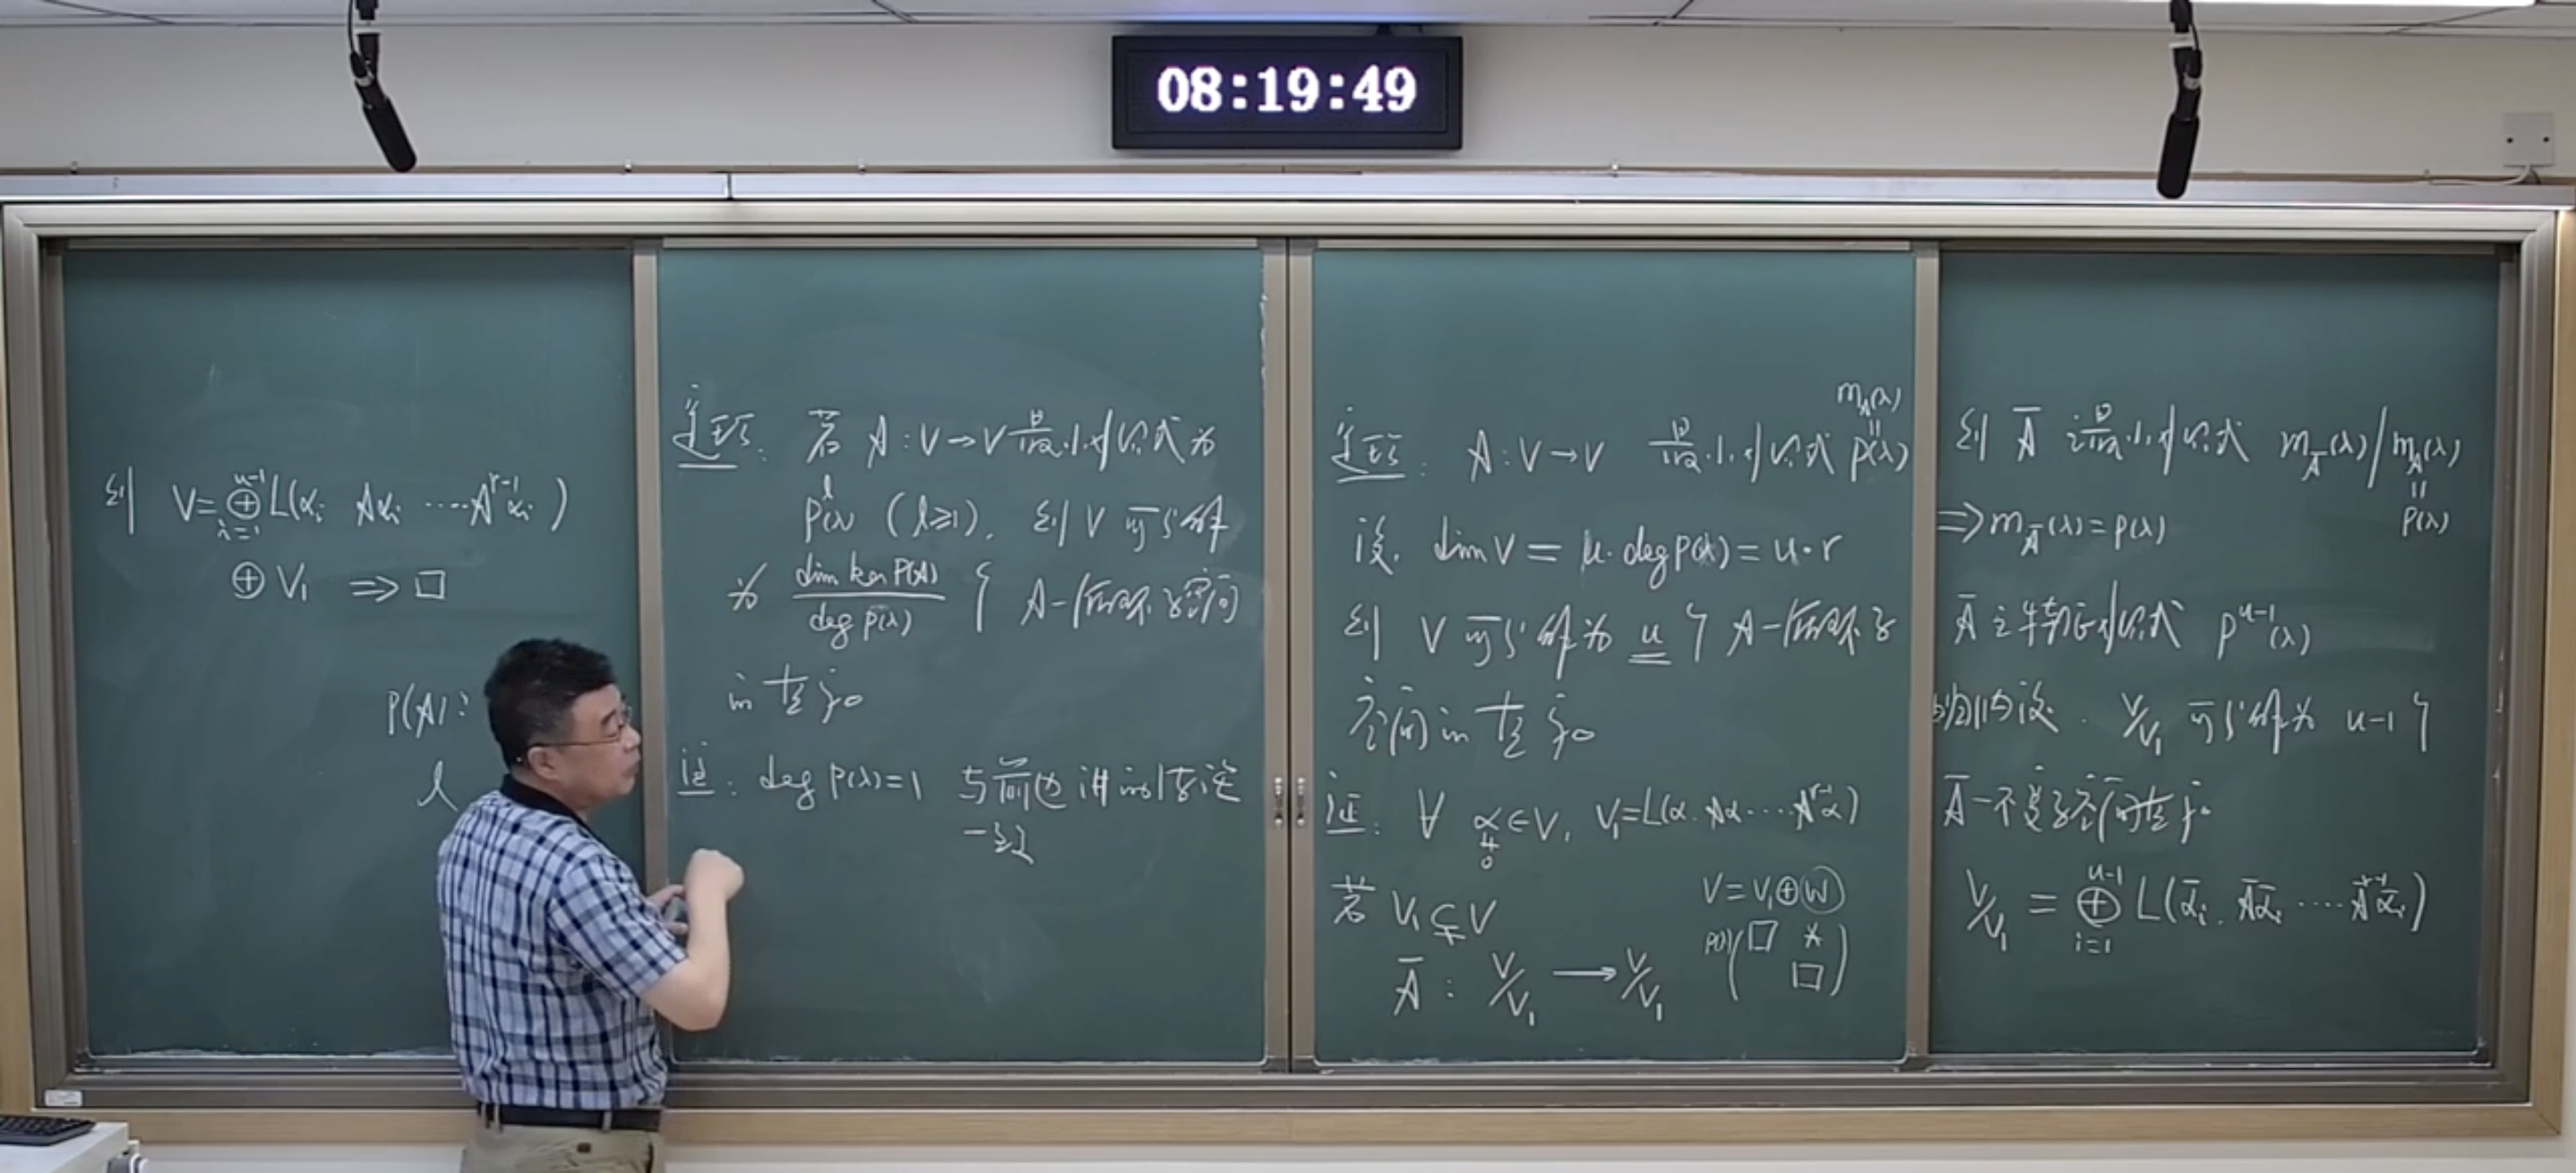 08:19:49
则 V = ⊕_{i=1}^{u-1} L(α_i  Aα_i ⋯ A^{r-1}α_i)
⊕ V₁ ⇒ □
P(A):
l
定理: 若 A: V→V 最小多项式为
P^l(λ) (l≥1). 则 V 可分解
为 dim ker P(A) / deg P(λ) 个 A-循环子空间
in 直和。
证: deg P(λ)=1 与前边讲in结论
一致
定理: A: V→V 最小多项式 P(λ)
m_A(λ)
=
设. dim V = u·deg P(λ) = u·r
则 V 可分解为 u 个 A-循环子
空间 in 直和。
证: ∀ α ∈ V, V₁ = L(α. Aα ⋯ A^{r-1}α)
≠
0
若 V₁ ⊊ V
V = V₁ ⊕ W
Ā: V/V₁ → V/V₁
P(λ) ( □ *
□ )
则 Ā 之最小多项式 m_Ā(λ) / m_A(λ)
=
P(λ)
⇒ m_Ā(λ) = P(λ)
Ā 之特征多项式 P^{u-1}(λ)
归纳设. V/V₁ 可分解为 u-1 个
Ā-不变子空间直和.
V/V₁ = ⊕_{i=1}^{u-1} L(ᾱ_i. Āᾱ_i ⋯ Ā^{r-1}ᾱ_i)